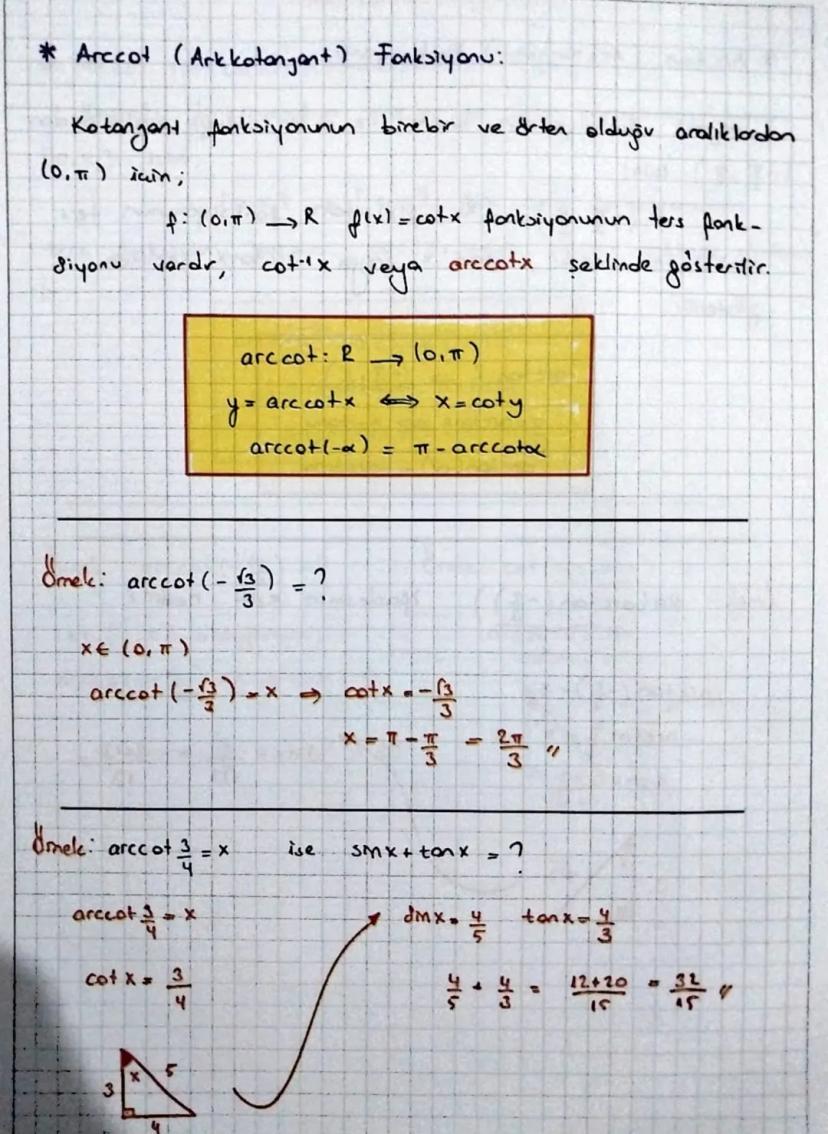 * Arccot (Arkkotanjant) Fonksiyonu:
Kotanjant fonksiyonunun birebir ve örten olduğu aralıklardan
(0,π) için;
f: (0,π) → R f(x) = cotx fonksiyonunun ters fonk-
siyonu vardır, cot⁻¹x veya arccotx şeklinde gösterilir.
arccot: R → (0,π)
y = arccotx ⟺ x = coty
arccot(-α) = π - arccotα
Örnek: arccot(-√3/3) = ?
x∈ (0,π)
arccot(-√3/3) = x ⇒ cotx = -√3/3
x = π - π/3 = 2π/3 //
Örnek: arccot 3/4 = x ise sinx + tanx = ?
arccot 3/4 = x sinx = 4/5 tanx = 4/3
cot x = 3/4 4/5 + 4/3 = 12+20/15 = 32/15 //
x 5
3
4